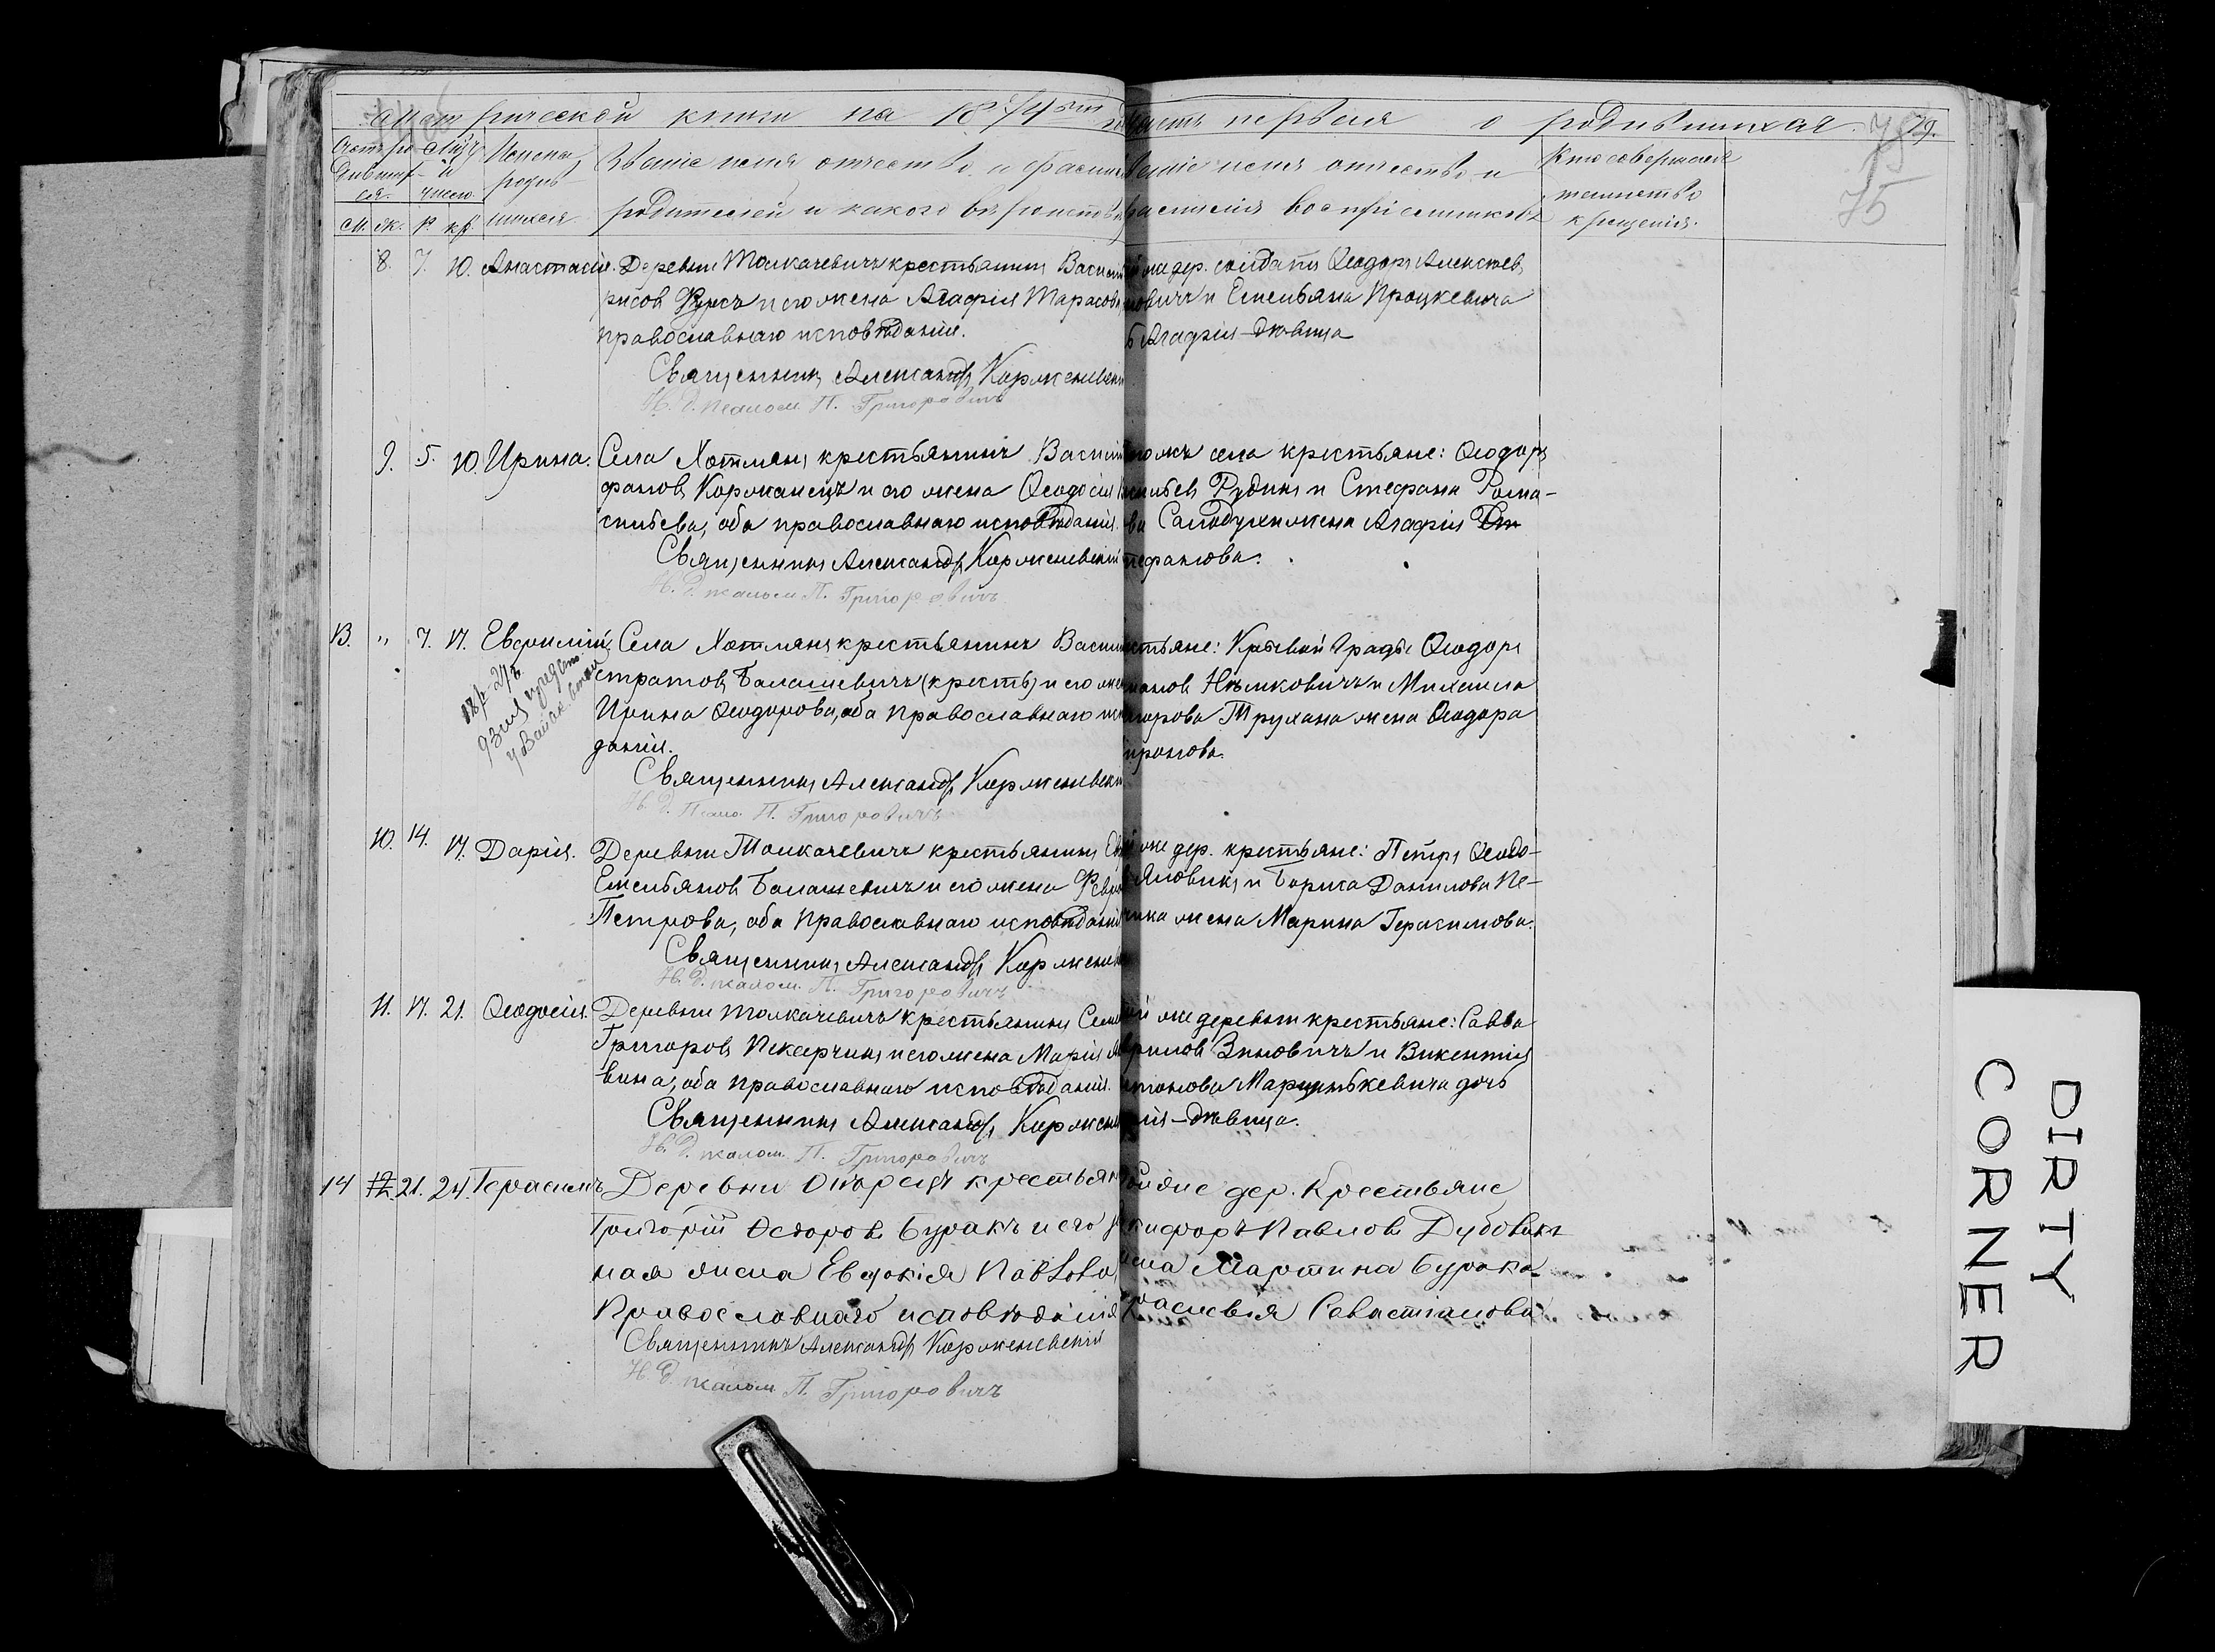 метрической книги на 1874й годъ часть первая о родившихся. 79.
75
Счетъ родившихся. Мѣсяцъ и число. Имена родившихся
Званіе имя отчество и фамилія родителей и какого вѣроисповѣд
Званіе имя отчество и фамилія воспріемниковъ
Кто совершалъ таинство крещенія.
м. ж. р. кр.
8. 7. 10. Анастасія. Деревни Толкачевичъ крестьянинъ Васил
рисов и его жена Агафія Тарасов
православнаго исповѣданія.
Священникъ Александръ Корженевск
И. Д. псалом. П. Григоровичъ
же дер. солдатъ Ѳеодоръ Алексѣев
овичъ и Емельяна Процкевича
Агафія-дѣвица
9. 5. 10. Ирина. Села Хотлянъ крестьянинъ Васил
фановъ Коржанецъ и его жена Ѳеодосія
сильева, оба православнаго исповѣданія.
Священникъ Александръ Корженевскій
И. Д. псалом П. Григоровичъ
гожъ села крестьяне: Ѳеодоръ
сильев Рудинъ и Стефана Рома-
ва Самодуха жена Агафія
тефанова.
13. " 7. 17. Евфимій, Села Хотлянъ крестьянинъ Васил
стратовъ Балашевичъ (кресть) и его же
Ирина Ѳеодорова, оба православнаго ис
данія.
Священникъ Александръ Корженевск
И. Д. Псало. П. Григоровичъ
стьяне: Кривой Грады Ѳеодоръ
манов и Михаила
горова Трухана жена Ѳеодора
пронова.
10. 14. 17. Дарія. Деревни Толкачевичъ крестьянинъ
Емельяновъ Балашевичъ и его жена Февро
Петрова, оба православнаго исповѣданія
Священникъ Александръ Коржене
И. Д. псалом. П. Григоровичъ
же дер. крестьяне: Петръ Ѳеодо-
Яновикъ и Бориса Данилова Пе-
чика жена Марина Герасимова.
11. 17. 21. Ѳеодосія. Деревни Толкачевичъ крестьянинъ Семе
Григоровъ Пекарчикъ и его жена Марія
вина, оба православнаго исповѣданія.
Священникъ Александръ Коржене
И. Д. псалом. П. Григоровичъ
й же деревни крестьяне: Савва
рилов Зиновичъ и Викентія
нтонова Марцинкевича дочь
рія-дѣвица.
14 12 21. 24. Герасимъ Деревни Озерецъ крестьян
Григорій Ѳедоровъ Буракъ и его
ная жена Евдокія Павлова
Православнаго исповѣданія
Священникъ Александръ Корженевскій
И. Д. псалом П. Григоровичъ
Тойже дер. Крестьяне
кифоръ Павловъ Дубовикъ
жена Мартина Бурака
Севастіанова
DIRTY
CORNER